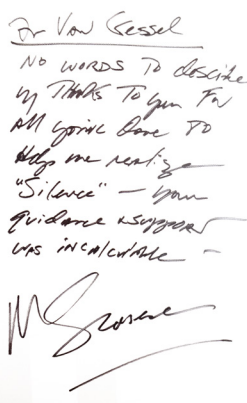 For Van Gessel
NO WORDS TO describe
my THANKS TO you FOR
All you've done TO
Help me realize
"Silence" — your
guidance & support
was incalculable —
M Scorsese